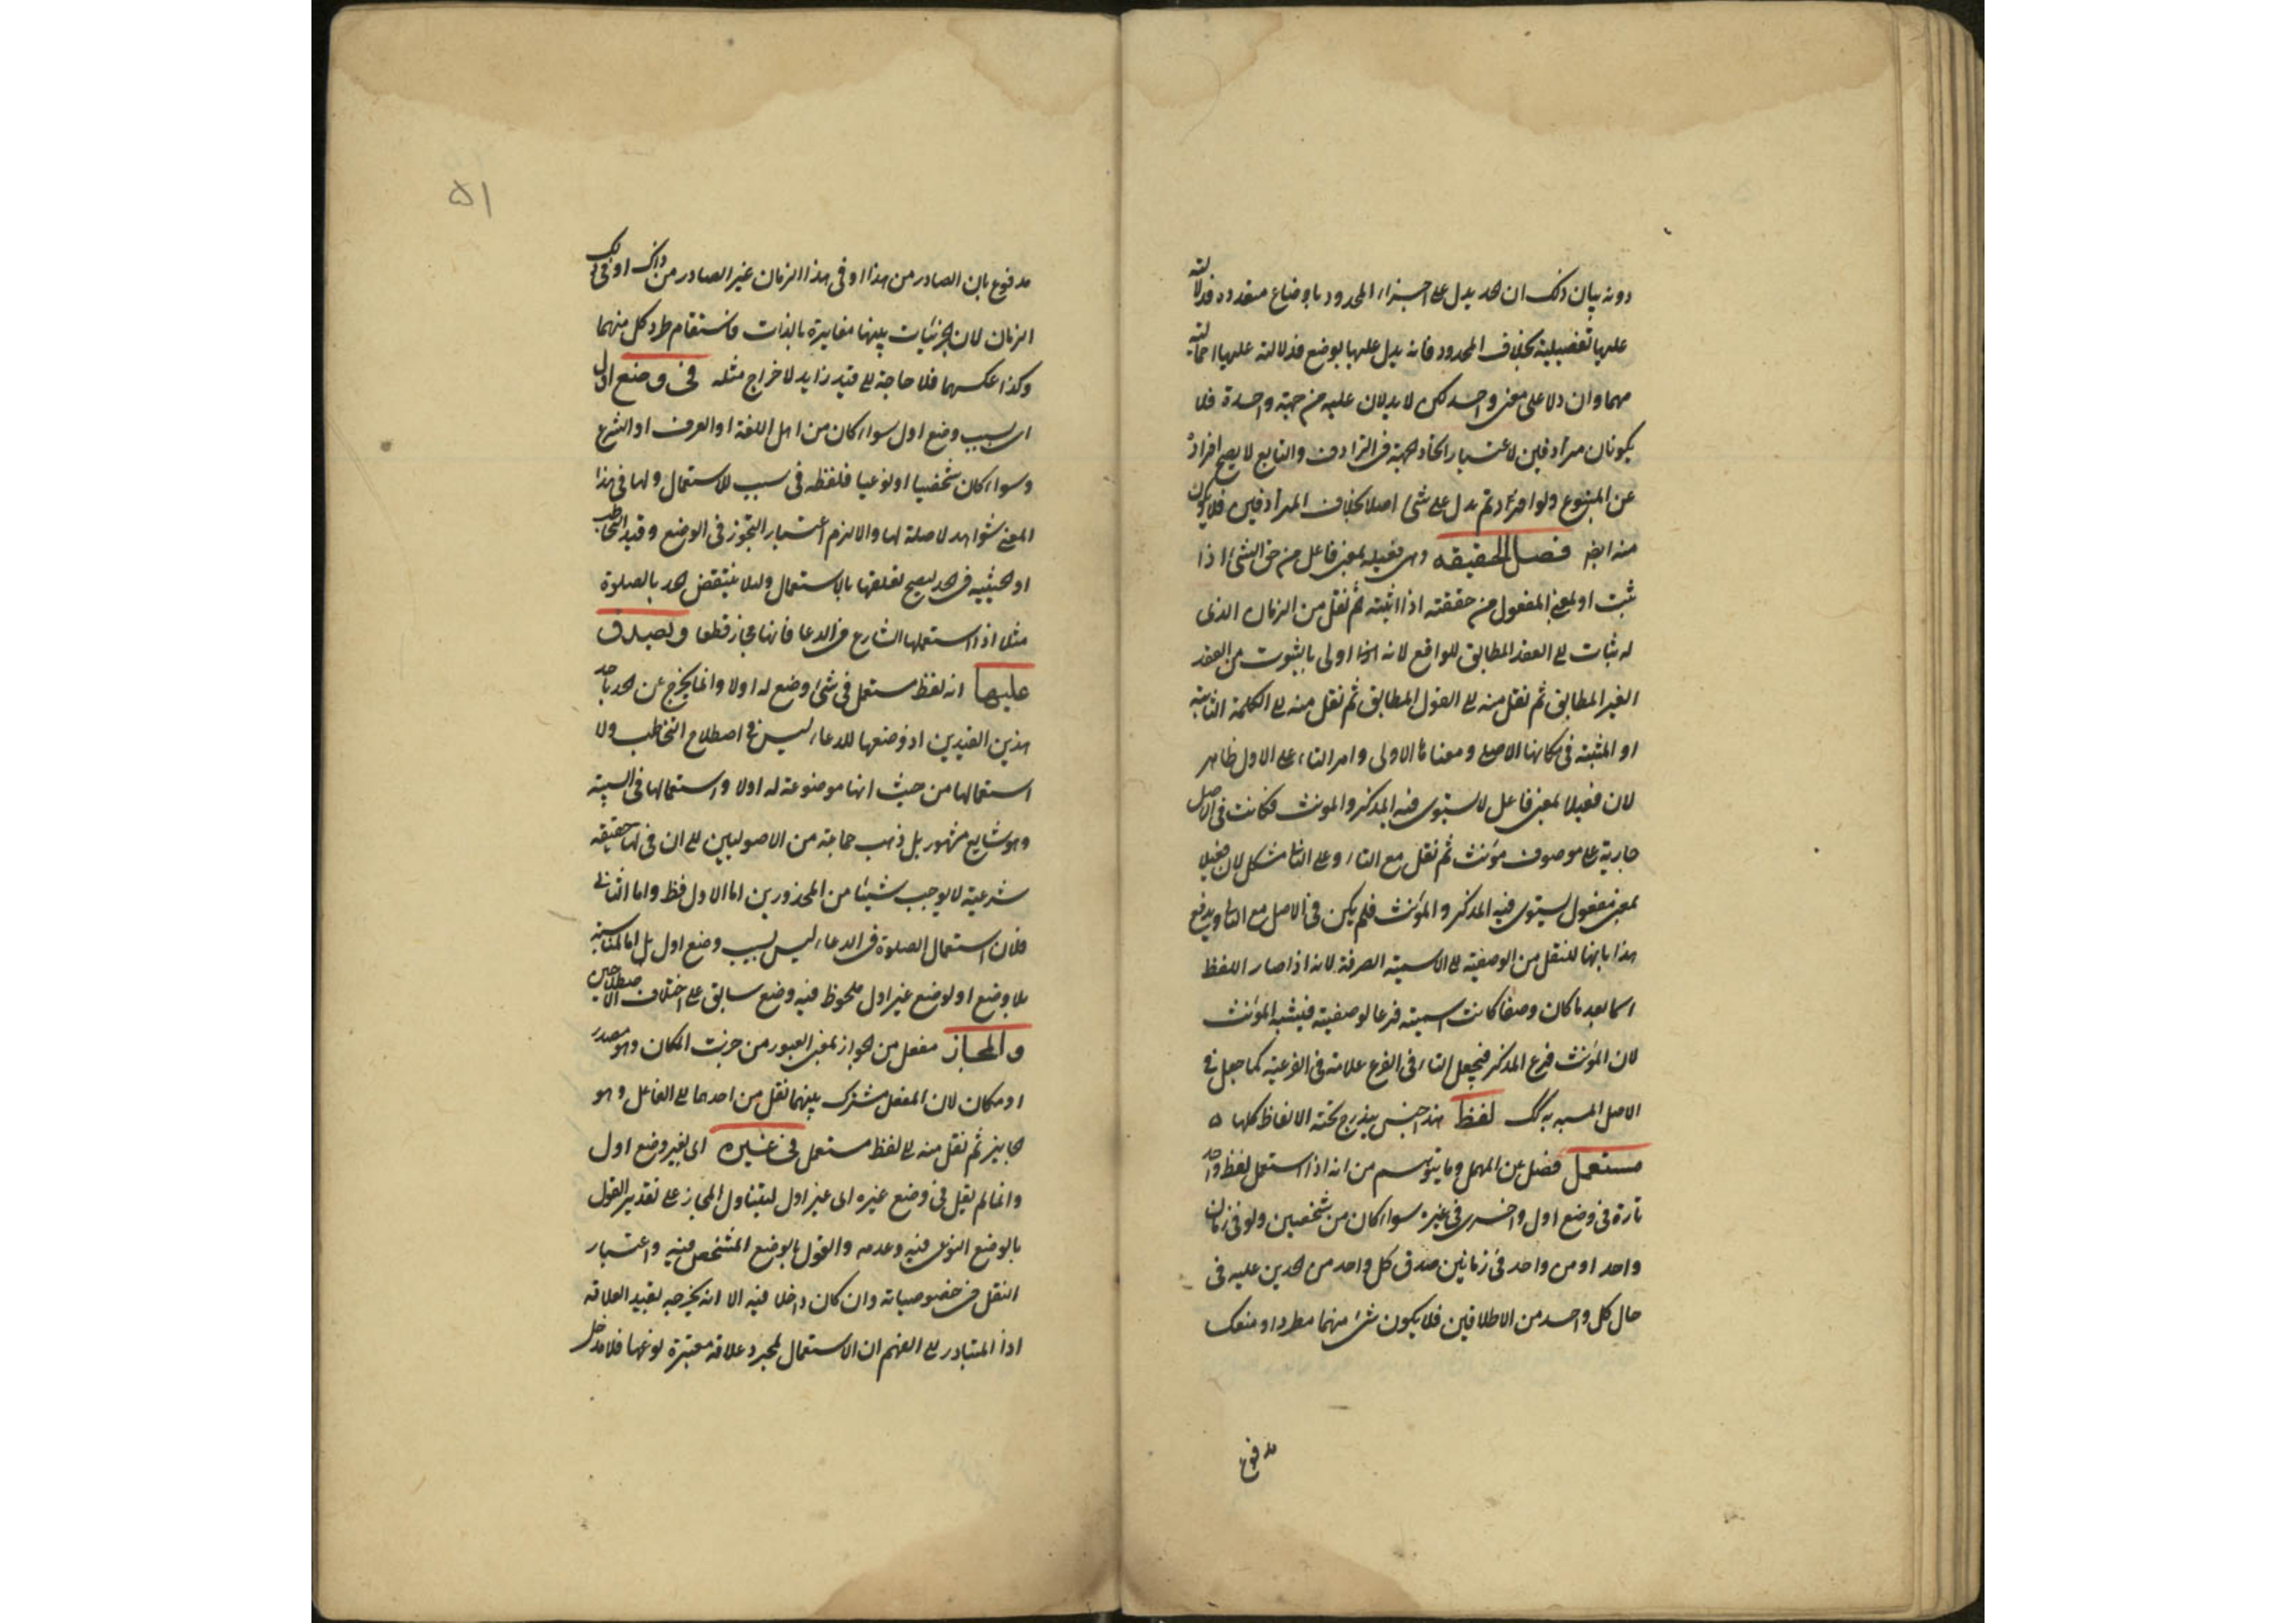 دونه بيان ذلك ان الحد يدل على اجزاء المحدود باوضاع متعدده فدلالته
عليها تفصيلية بخلاف المحدود فانه يدل عليها بوضع فدلالته عليها اجمالية
مهما وان دلا على معنى واحد لكن لا يدلان عليه من جهة واحدة فلا
يكونان مترادفين لاعتبار اتحاد الجهة فى الترادف والتابع لا يصح افراده
عن المتبوع ولو افرد لم يدل على شئ اصلا بخلاف المترادفين فلا يكون
منه ايضا فصل الحقيقه وهى فعيله بمعنى فاعل من حق الشئ اذا
ثبت او بمعنى المفعول من حققته اذا اثبته ثم نقل من الزمان الذى
له ثبات الى العقد المطابق للواقع لانه اولى بالثبوت من العقد
الغير المطابق ثم نقل منه الى القول المطابق ثم نقل منه الى الكلمة الثابتة
او المثبتة فى مكانها الاصلى ومعناها الاولى وامر التاء على الاول ظاهر
لان فعيلا بمعنى فاعل لا يستوى فيه المذكر والمونث فكانت فى الاصل
جارية على موصوف مونث ثم نقل مع التاء وعلى الثانى مشكل لان فعيلا
بمعنى مفعول يستوى فيه المذكر والمونث فلم يكن فى الاصل مع التاء ويدفع
هذا بانها للنقل من الوصفية الى الاسمية الصرفة لانه اذا صار اللفظ
اسما بعد ما كان وصفا كانت اسميته فرعا لوصفيته فيشبه المؤنث
لان المؤنث فرع المذكر فيجعل التاء فى الفرع علامة فى الفرعية كما جعل فى
الاصل المشبه به لفظ هذا جنس يندرج تحته الالفاظ كلها ه
مستعمل فصل عن المهمل وما يتوهم من انه اذا استعمل لفظ واحد
تارة فى وضع اول واخرى فى غيره سواء كان من شخصين ولو فى زمان
واحد او من واحد فى زمانين صدق كل واحد من الحدين عليه فى
حال كل واحد من الاطلاقين فلا يكون شئ منهما مطردا او منعكسا
مدفوع
٥١
مدفوع بان الصادر من هذا او فى هذا الزمان غير الصادر من ذاك او فى ذلك
الزمان لان الجزئيات بينها مغايرة بالذات فاستقام طرد كل منهما
وكذا عكسهما فلا حاجة الى قيد زايد لاخراج مثله فى وضع اول
اى بسبب وضع اول سواء كان من اهل اللغة او العرف او الشرع
وسواء كان شخصيا او نوعيا فلفظه فى سبب للاستعمال ولها فى هذا
المعنى شواهد لا صلة لها والا لزم اعتبار التجوز فى الوضع وقيد التخاطب
او الحيثيه فى الحد ليصح تعلقها بالاستعمال ولئلا ينتقض الحد بالصلوة
مثلا اذا استعملها الشارع فى الدعا فانها مجاز قطعا ويصدق
عليها انه لفظ مستعمل فى شئ وضع له اولا وانما يخرج عن الحد باحد
هذين القيدين اذ وضعها للدعاء ليس فى اصطلاح التخاطب ولا
استعمالها من حيث انها موضوعة له اولا واستعمالها فى السببية
وهو شايع مشهور بل ذهب جماعة من الاصوليين الى ان فى لها حقيقة
شرعية لا يوجب شيئا من المحذورين اما الاول فظ واما الثانى
فلان استعمال الصلوة فى الدعاء ليس بسبب وضع اول بل اما لمناسبة
بلا وضع او لوضع غير اول ملحوظ فيه وضع سابق على اختلاف الاصطلاحين
والمجاز مفعل من الجواز بمعنى العبور من جزت المكان وهو مصدر
او مكان لان المفعل مشترك بينهما نقل من احدهما الى الفاعل وهو
الجايز ثم نقل منه الى لفظ مستعمل فى غيره اى بغير وضع اول
وانما لم يقل فى وضع غيره اى غير اول ليتناول المجاز على تقدير القول
بالوضع النوعى فيه وعدمه والقول بالوضع المشخص فيه واعتبار
النقل فى خصوصياته وان كان داخلا فيه الا انه يخرجه بقيد العلاقه
اذا المتبادر الى الفهم ان الاستعمال لمجرد علاقة معتبرة نوعها فلا مدخل